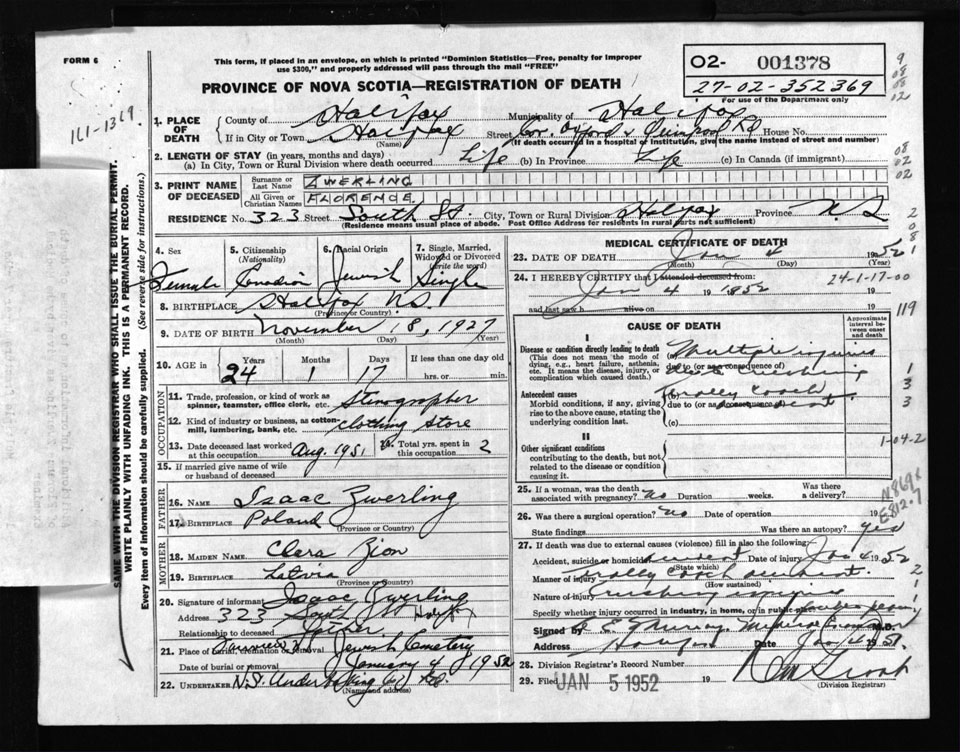 FORM 6
This form, if placed in an envelope, on which is printed "Dominion Statistics—Free, penalty for improper
use $300," and properly addressed will pass through the mail "FREE"
PROVINCE OF NOVA SCOTIA—REGISTRATION OF DEATH
O2- 001378
27-02-352369
For use of the Department only
161-1369.
1. PLACE OF DEATH
County of Halifax Municipality of Halifax
If in City or Town Halifax Street Cor. Oxford & Quinpool Rd House No.
(Name) (If death occurred in a hospital or institution, give the name instead of street and number)
2. LENGTH OF STAY (in years, months and days)
(a) In City, Town or Rural Division where death occurred Life (b) In Province Life (c) In Canada (if immigrant)
3. PRINT NAME OF DECEASED
Surname or Last Name ZWERLING
All Given or Christian Names FLORENCE
RESIDENCE No. 323 Street South St. City, Town or Rural Division Halifax Province N S
(Residence means usual place of abode. Post Office Address for residents in rural parts not sufficient)
4. Sex Female
5. Citizenship (Nationality) Canadian
6. Racial Origin Jewish
7. Single, Married, Widowed or Divorced (write the word) Single
8. BIRTHPLACE Halifax NS
(Province or Country)
9. DATE OF BIRTH November 18, 1927
(Month) (Day) (Year)
10. AGE in Years 24 Months 1 Days 17 If less than one day old
hrs. or min.
OCCUPATION
11. Trade, profession, or kind of work as spinner, teamster, office clerk, etc. Stenographer
12. Kind of industry or business, as cotton-mill, lumbering, bank, etc. Clothing Store
13. Date deceased last worked at this occupation Aug. 1951
14. Total yrs. spent in this occupation 2
15. If married give name of wife or husband of deceased
FATHER
16. NAME Isaac Zwerling
17. BIRTHPLACE Poland
(Province or Country)
MOTHER
18. MAIDEN NAME Clara Zion
19. BIRTHPLACE Latvia
(Province or Country)
20. Signature of informant Isaac Zwerling
Address 323 South St Halifax
Relationship to deceased Father
21. Place of burial, cremation or removal Fairview Jewish Cemetery
Date of burial or removal January 4 1952
22. UNDERTAKER N.S. Undertaking Co Ltd
(Name and address)
MEDICAL CERTIFICATE OF DEATH
23. DATE OF DEATH Jan 4 1952
(Month) (Day) (Year)
24. I HEREBY CERTIFY that I attended deceased from:
Jan 4 19 1952 19
and last saw h alive on 19
24-1-17-00
119
CAUSE OF DEATH
Approximate interval between onset and death
I
Disease or condition directly leading to death
(This does not mean the mode of dying, e.g., heart failure, asthenia, etc. It means the disease, injury, or complication which caused death.)
(a) Multiple injuries
due to (or as a consequence of)
(b) crushing
Antecedent causes
Morbid conditions, if any, giving rise to the above cause, stating the underlying condition last.
Trolly Coach
due to (or as a consequence of)
(c)
II
Other significant conditions
contributing to the death, but not related to the disease or condition causing it.
1-04-2
25. If a woman, was the death associated with pregnancy? no Duration weeks. Was there a delivery?
26. Was there a surgical operation? no Date of operation 19
State findings Was there an autopsy? yes
N869x
E812.7
27. If death was due to external causes (violence) fill in also the following:
Accident, suicide or homicide accident Date of injury Jan 4 1952
(State which)
Manner of injury Trolly Coach accident.
(How sustained)
Nature of injury crushing injuries
Specify whether injury occurred in industry, in home, or in public place
Signed by E. Murray, Medical Examiner M.D.
Address Halifax Date Jan 4 195
28. Division Registrar's Record Number
29. Filed JAN 5 1952 19
(Division Registrar)
SAME WITH THE DIVISION REGISTRAR WHO SHALL ISSUE THE BURIAL PERMIT.
WRITE PLAINLY WITH UNFADING INK. THIS IS A PERMANENT RECORD.
Every item of information should be carefully supplied. (See reverse side for instructions.)